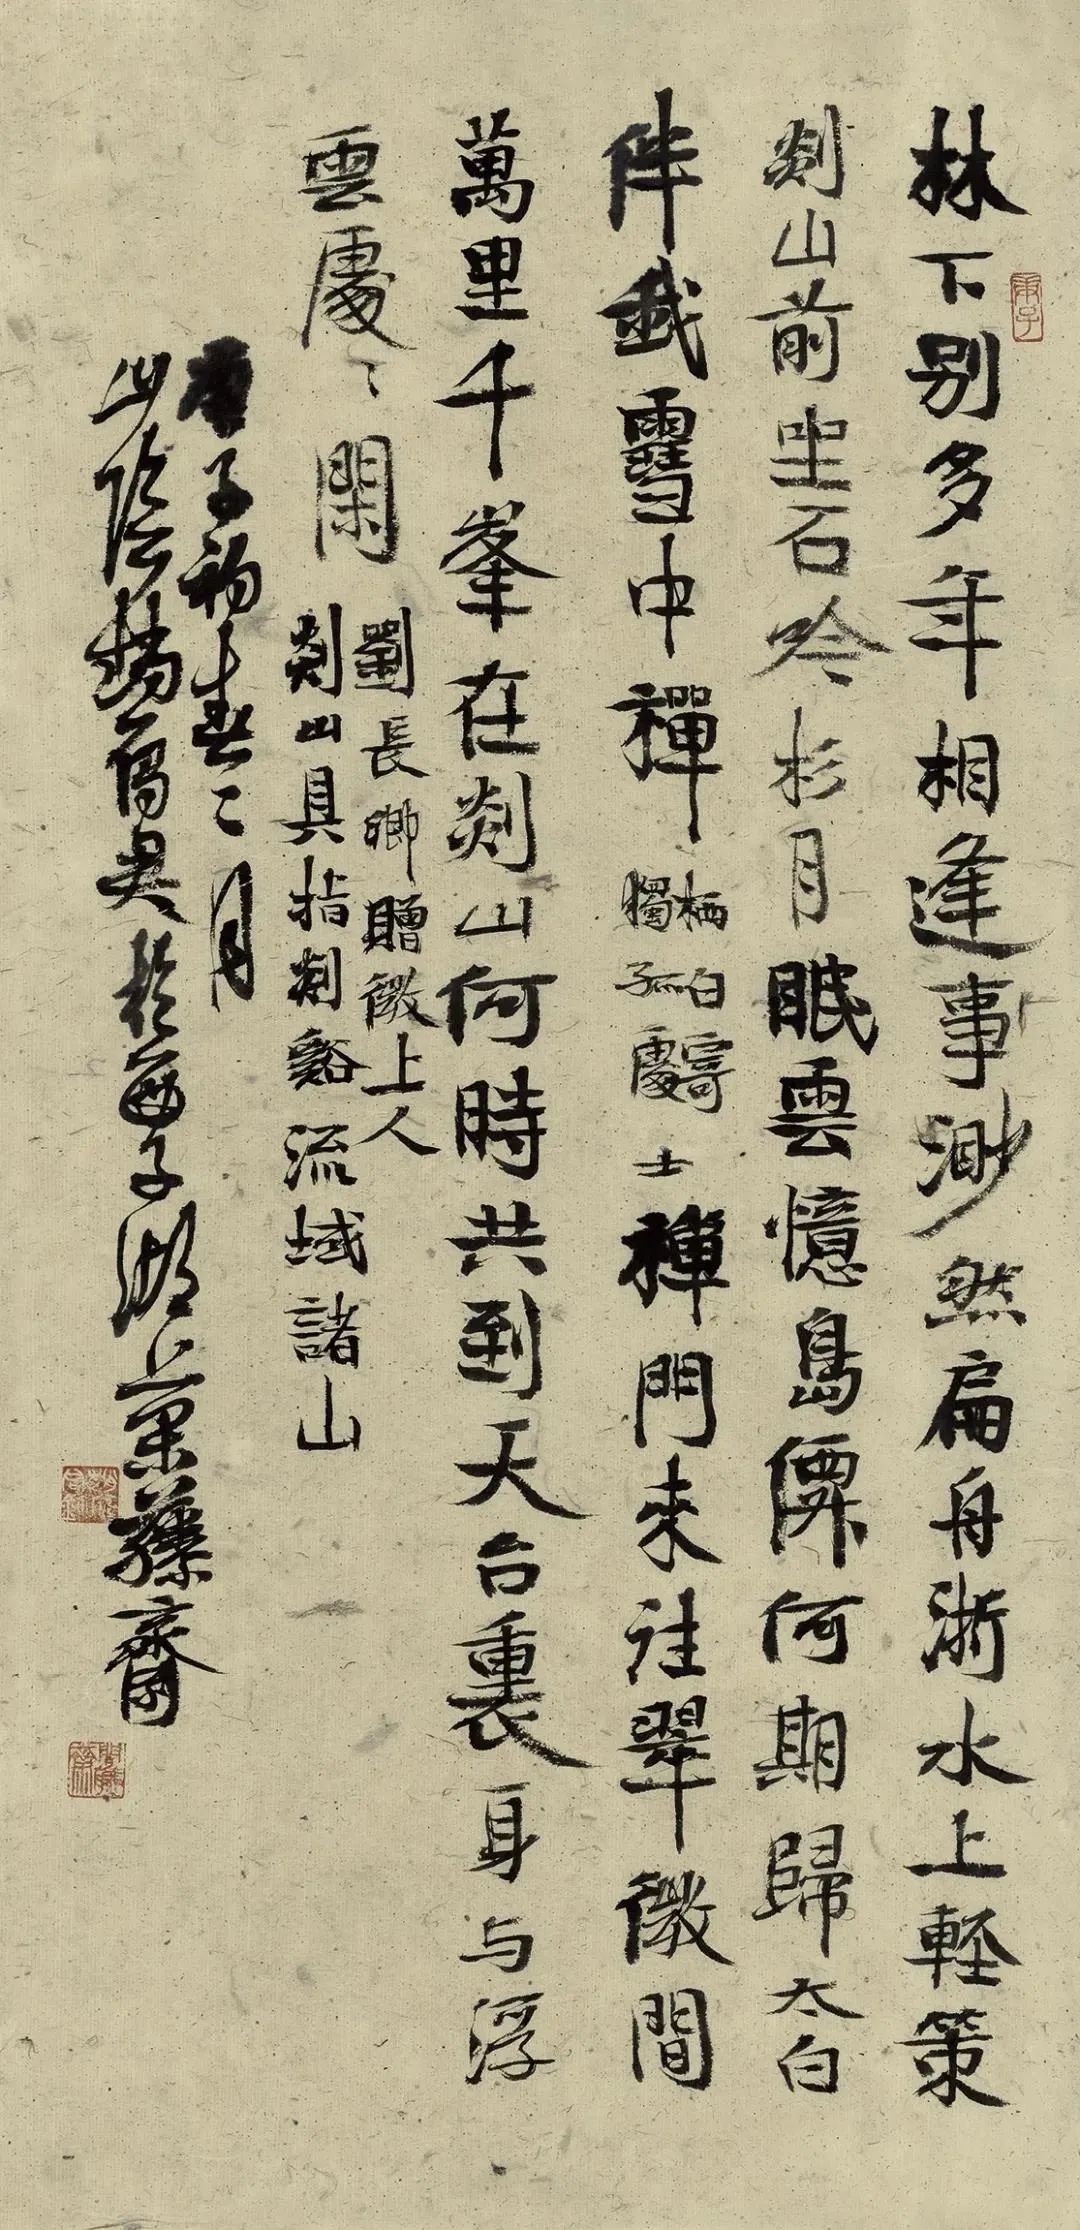 林下別多年相逢事渺然扁舟浙水上輕策
剡山前坐石吟杉月眠雲憶島僊何期歸太白
伴我雪中禪
栖白寄
獨孤處士
禪門來往翠微間
萬里千峯在剡山何時共到天台裏身与浮
雲處〻閑
劉長卿贈微上人
剡山具指剡谿流域諸山
庚子初春二月
山陰楊
於西子湖上
齋
庚子